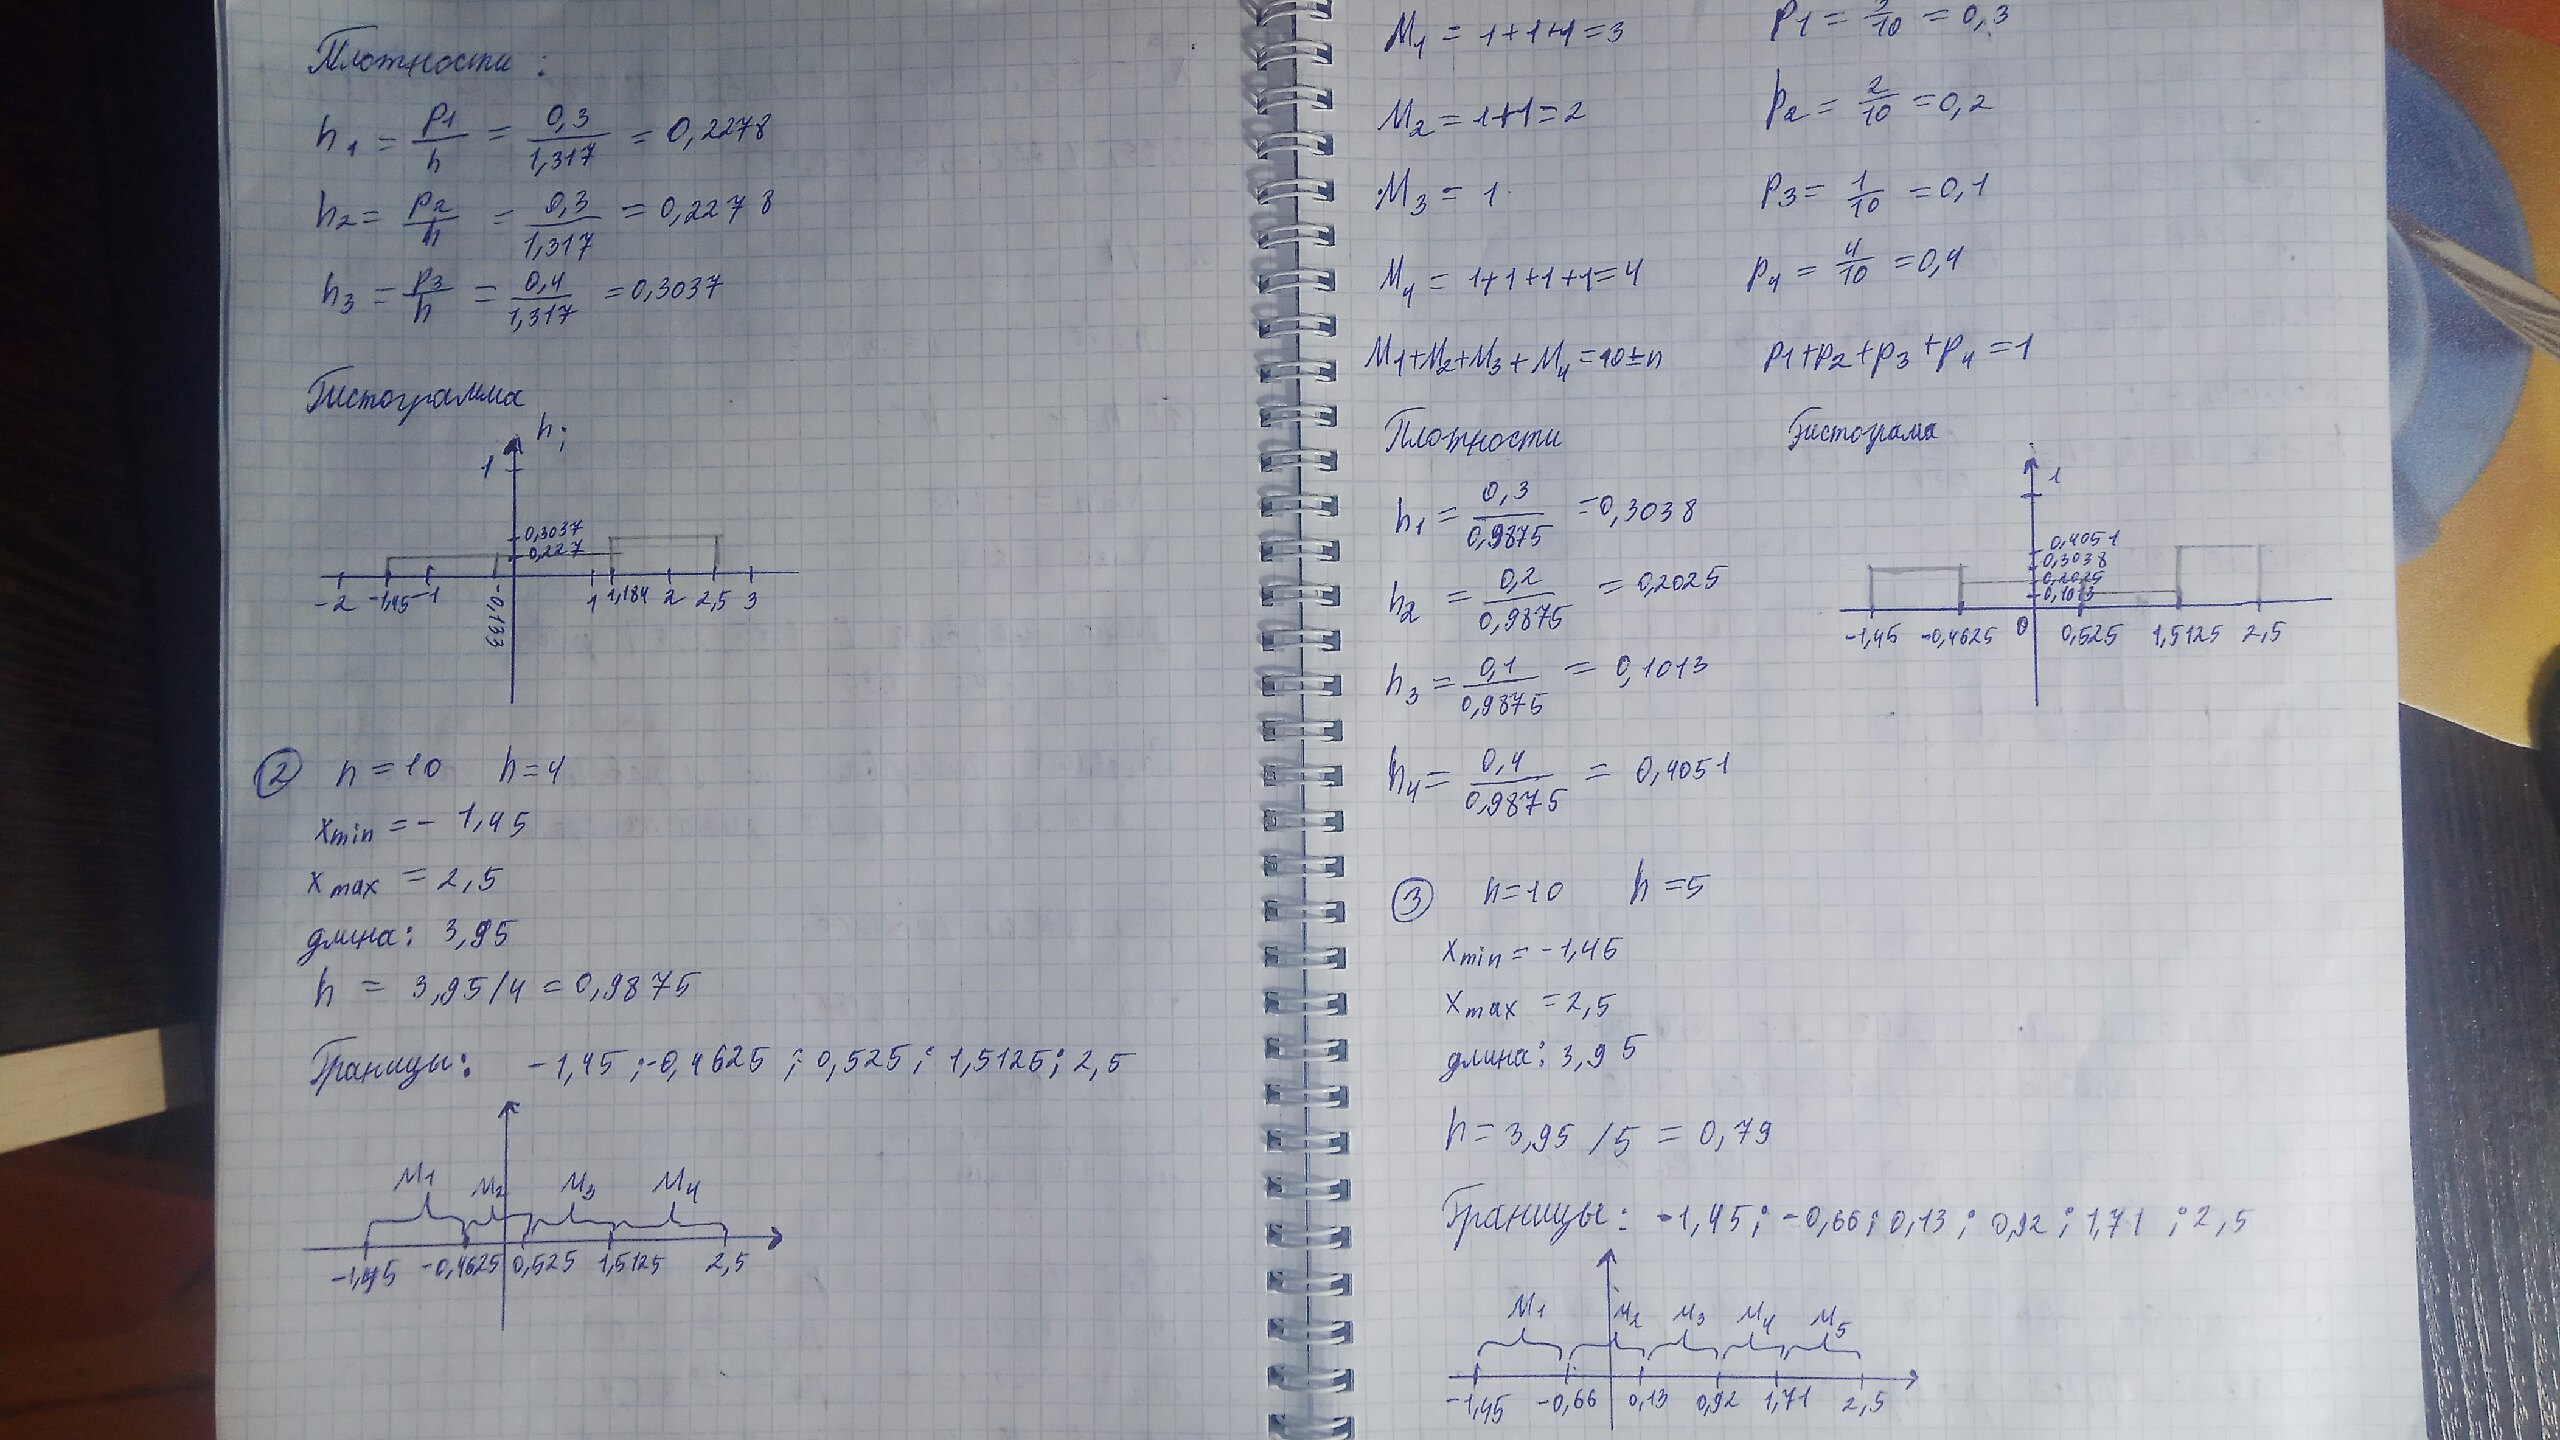 Плотности:
h₁ = p1/h = 0,3/1,317 = 0,2278
h₂ = p2/h = 0,3/1,317 = 0,2278
h₃ = p3/h = 0,4/1,317 = 0,3037
Гистограмма
hi
1
0,3037
0,227
-2 -1,45 -1 -0,133 1 1,184 2 2,5 3
② n = 10 h = 4
xmin = - 1,45
xmax = 2,5
длина: 3,95
h = 3,95/4 = 0,9875
Границы: -1,45 ; -0,4625 ; 0,525 ; 1,5125 ; 2,5
M1 M2 M3 M4
-1,45 -0,4625 0,525 1,5125 2,5
M₁ = 1+1+1=3 P1 = 3/10 = 0,3
M₂ = 1+1=2 p2 = 2/10 = 0,2
M₃ = 1 P3 = 1/10 = 0,1
M₄ = 1+1+1+1=4 P4 = 4/10 = 0,4
M1+M2+M3+M4 = 10 = n p1+p2+p3+p4 = 1
Плотности Гистограма
h1 = 0,3/0,9875 = 0,3038
h2 = 0,2/0,9875 = 0,2025
h3 = 0,1/0,9875 = 0,1013
h4 = 0,4/0,9875 = 0,4051
1
0,4051
0,3038
0,2025
0,1013
-1,45 -0,4625 0 0,525 1,5125 2,5
③ n=10 h=5
xmin = -1,45
xmax = 2,5
длина: 3,95
h = 3,95 / 5 = 0,79
Границы: -1,45; -0,66; 0,13; 0,92; 1,71 ; 2,5
M1 M2 M3 M4 M5
-1,45 -0,66 0,13 0,92 1,71 2,5